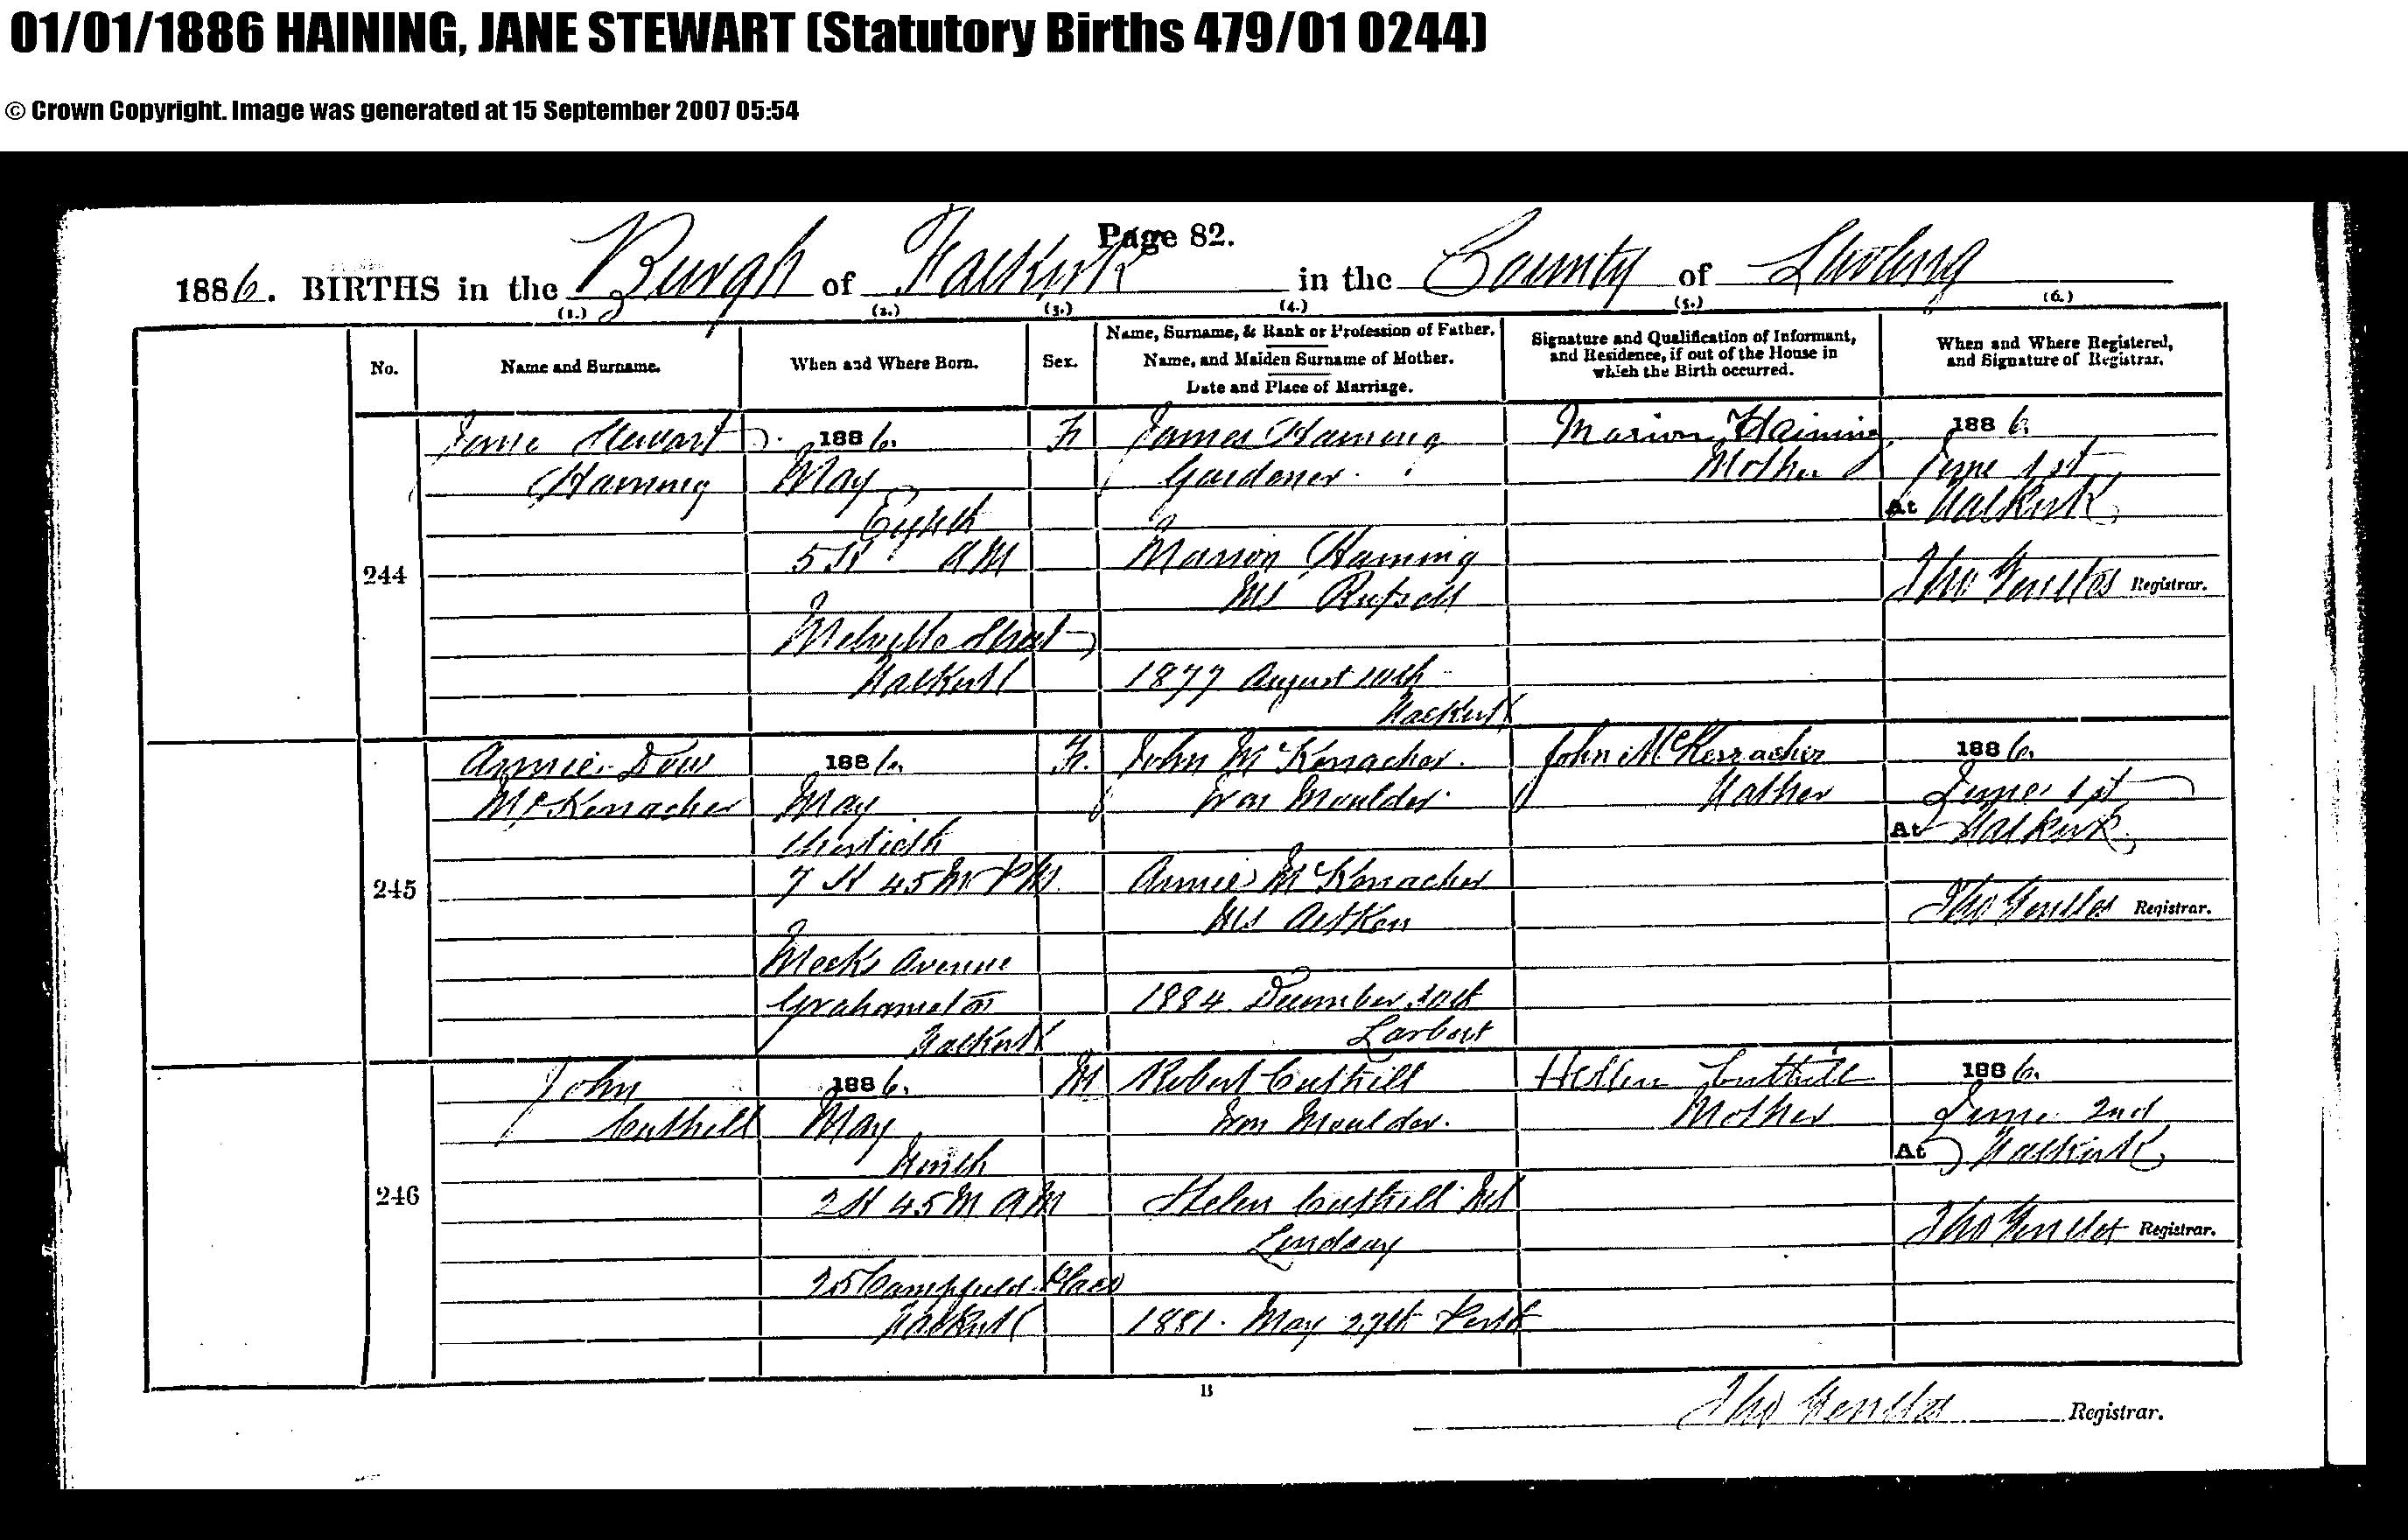 01/01/1886 HAINING, JANE STEWART (Statutory Births 479/01 0244)
© Crown Copyright. Image was generated at 15 September 2007 05:54
Page 82.
1886. BIRTHS in the Burgh of Falkirk in the County of Stirling
(1.) (2.) (3.) (4.) (5.) (6.)
No.
Name and Surname.
When and Where Born.
Sex.
Name, Surname, & Rank or Profession of Father.
Name, and Maiden Surname of Mother.
Date and Place of Marriage.
Signature and Qualification of Informant,
and Residence, if out of the House in
which the Birth occurred.
When and Where Registered,
and Signature of Registrar.
244
Jane Stewart
Haining
1886.
May
Eighth
5 H AM
Melville Street
Falkirk
F
James Haining
Gardener.
Marion Haining
MS Russell
1877 August 10th
Falkirk
Marion Haining
Mother
1886.
June 1st
At Falkirk
Tho Registrar.
245
Annie Dow
McKerracher
1886.
May
Thirtieth
7 H 45 M PM
Meeks Avenue
Grahamston
Falkirk
F.
John McKerracher.
Iron Moulder.
Annie McKerracher
MS Aitken
1884 December 30th
Larbert
John McKerracher
Father
1886.
June 1st
At Falkirk
Tho Registrar.
246
John
Cuthill
1886.
May
2 H 45 M AM
25 Campfield Place
Falkirk
M
Robert Cuthill
Iron Moulder.
Helen Cuthill MS
Lindsay
1881. May 27th Perth
Hellen Cuthill
Mother
1886.
June 2nd
At Falkirk
Tho Registrar.
B
Tho Registrar.